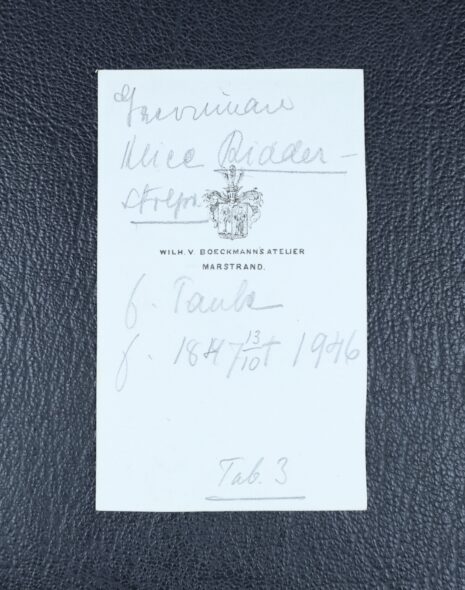 Alice Ridder-
stolpe
WILH. V. BOECKMANN'S ATELIER
MARSTRAND.
f.
f. 1847 13/10 † 1946
Tab. 3